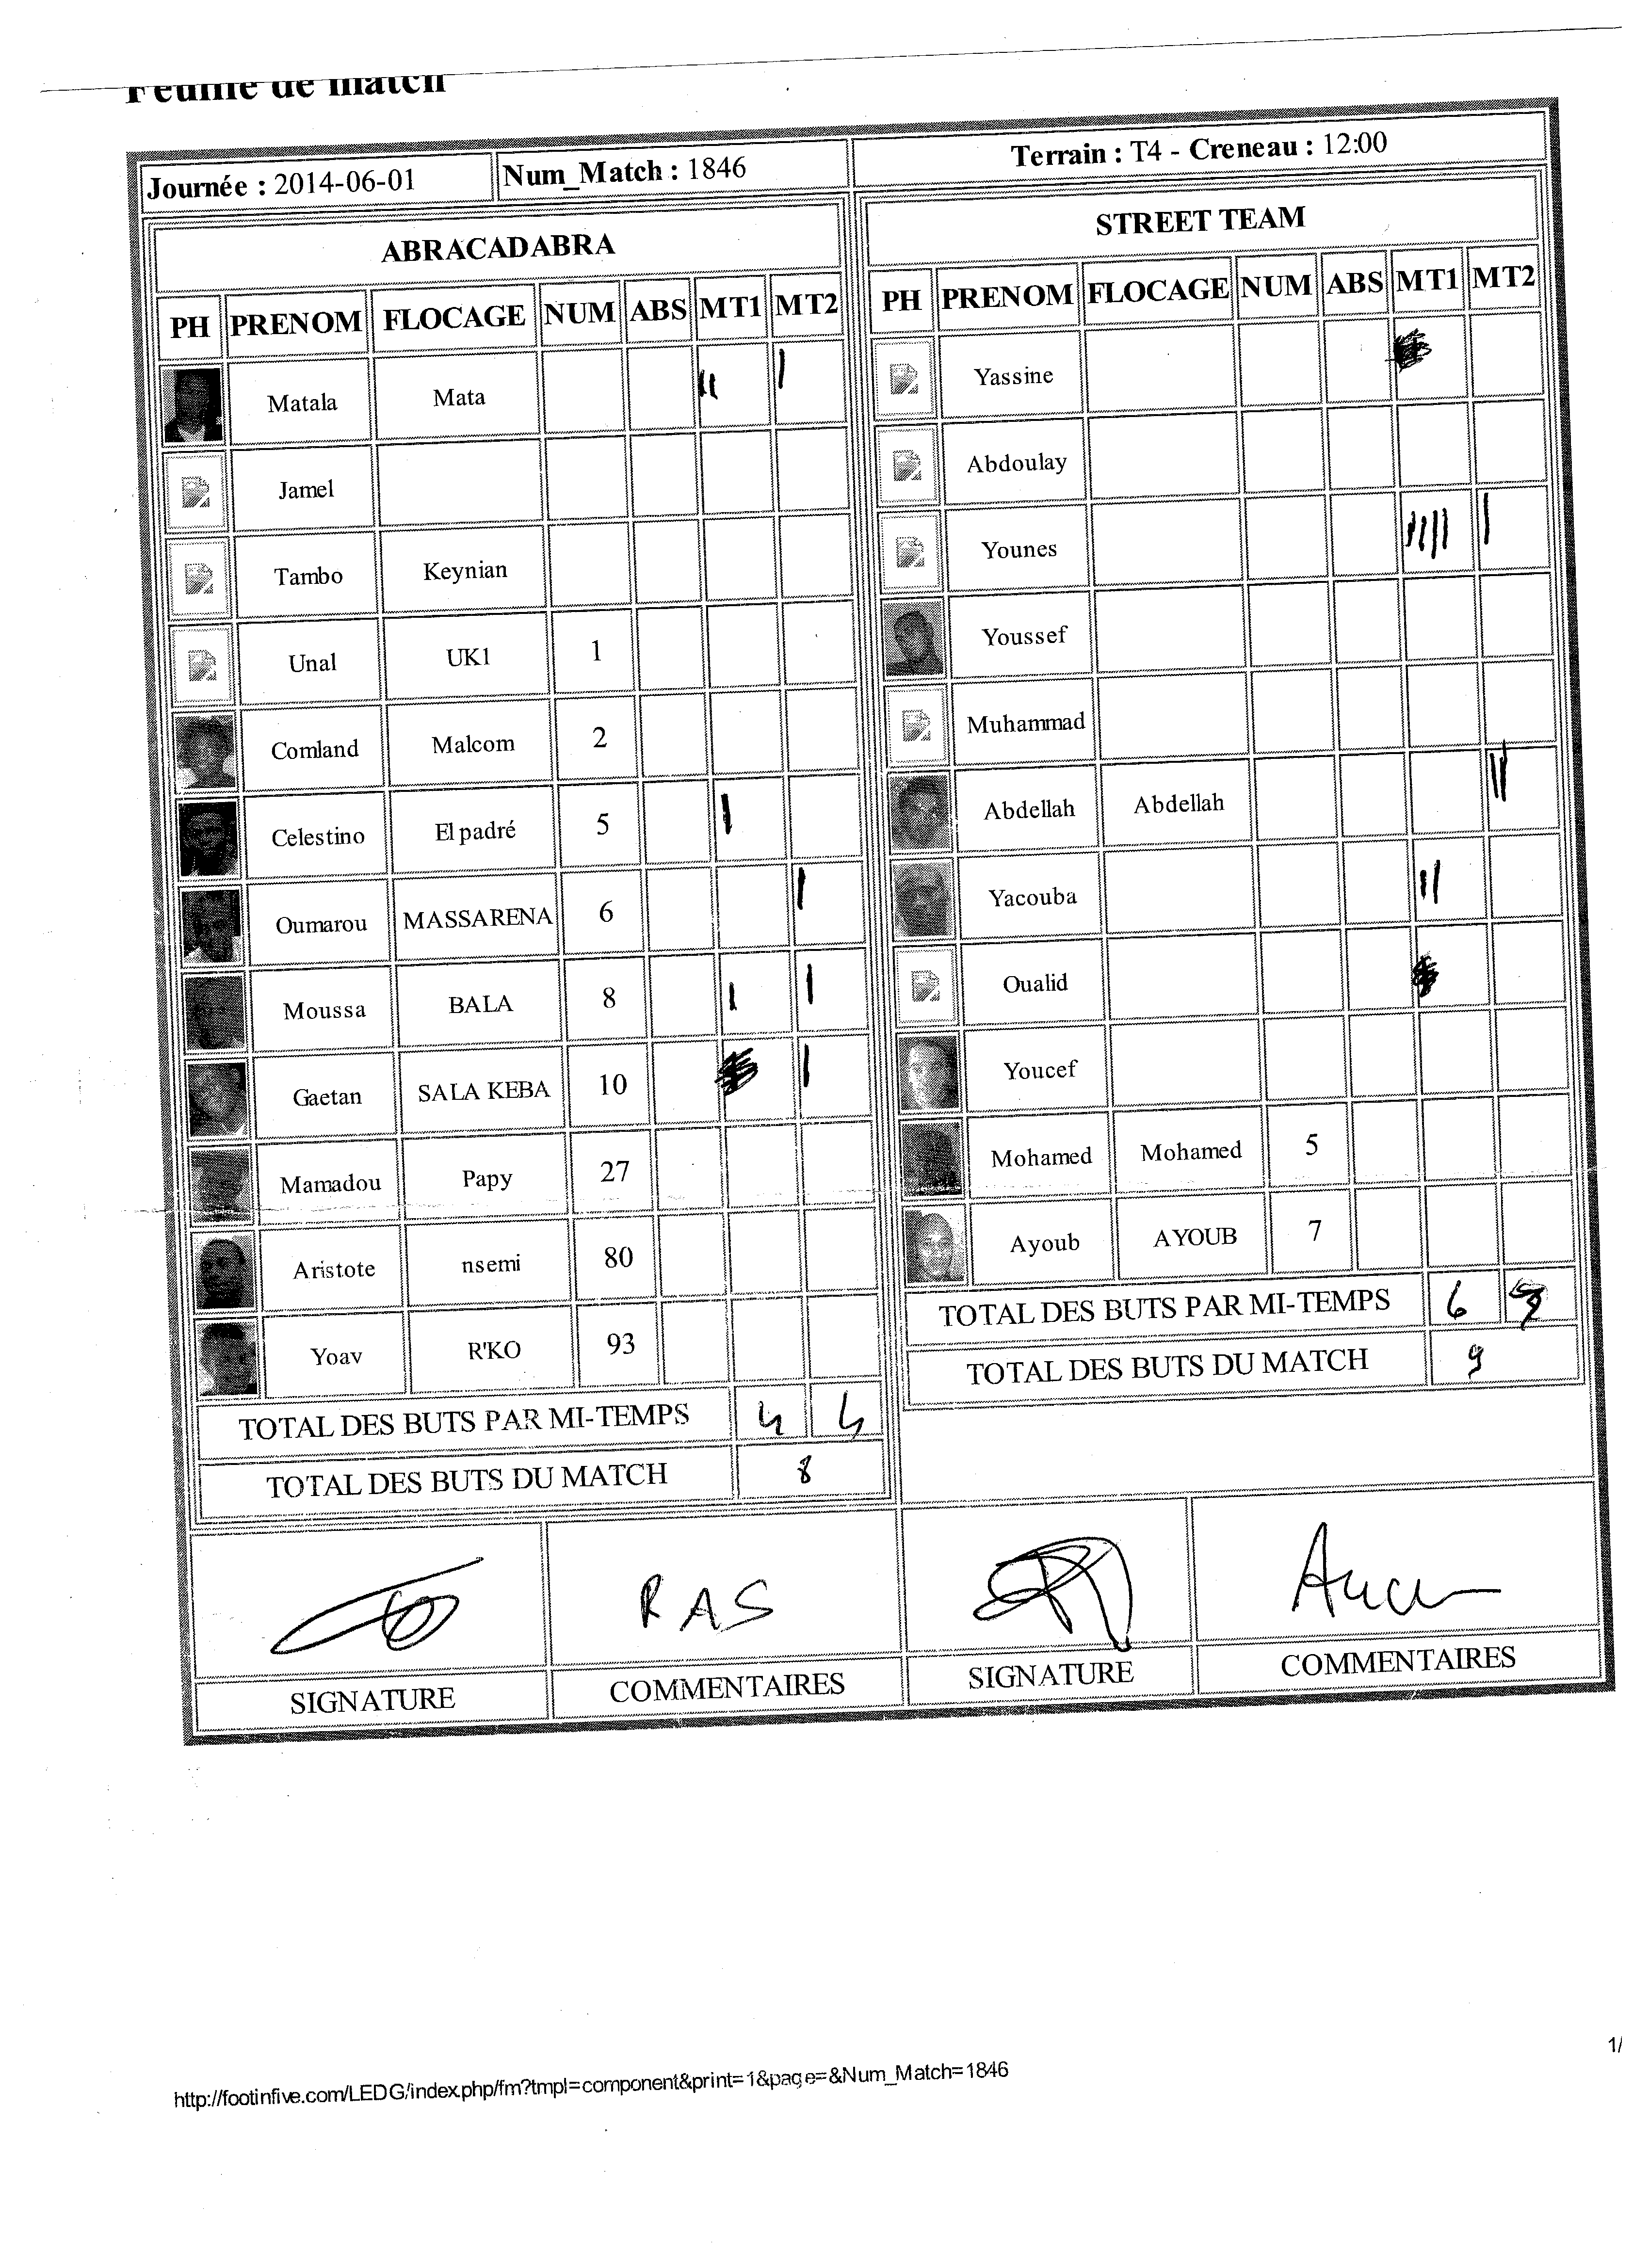 Feuille de match
Journée : 2014-06-01 Num_Match : 1846 Terrain : T4 - Creneau : 12:00
ABRACADABRA
PH PRENOM FLOCAGE NUM ABS MT1 MT2
Matala Mata II I
Jamel
Tambo Keynian
Unal UK1 1
Comland Malcom 2
Celestino El padré 5 I
Oumarou MASSARENA 6 I
Moussa BALA 8 I I
Gaetan SALA KEBA 10 I
Mamadou Papy 27
Aristote nsemi 80
Yoav R'KO 93
TOTAL DES BUTS PAR MI-TEMPS 4 4
TOTAL DES BUTS DU MATCH 8
STREET TEAM
PH PRENOM FLOCAGE NUM ABS MT1 MT2
Yassine
Abdoulay
Younes IIII I
Youssef
Muhammad
Abdellah Abdellah II
Yacouba II
Oualid
Youcef
Mohamed Mohamed 5
Ayoub AYOUB 7
TOTAL DES BUTS PAR MI-TEMPS 6
TOTAL DES BUTS DU MATCH 9
RAS
SIGNATURE COMMENTAIRES SIGNATURE COMMENTAIRES
http://footinfive.com/LEDG/index.php/fm?tmpl=component&print=1&page=&Num_Match=1846
1/